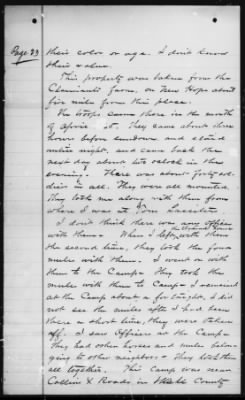 Page 23
their color or age. I don't know
their value.
This property was taken from the
farm, on New Hope about
five miles from this place.
The troops came there in the month
of April. They came about three
hours before sundown and staid
entire night, and came back the
next day about two o'clock in the
evening. There was about forty sol-
diers in all. They were all mounted.
They took me along with them from
where I was at Tom
I don't think there were any officers
with them. When I left with them
the second time, they took the four
mules with them. I went on with
them to the Camp. They took the
mules with them to Camp. I remained
at the Camp about a fortnight, I did
not see the mules after I had been
there a short time, they were taken
off. I saw officers at the Camp.
They had other horses and mules belon-
ging to other neighbors. They took them
all together. This camp was near
Collins X Roads, in County